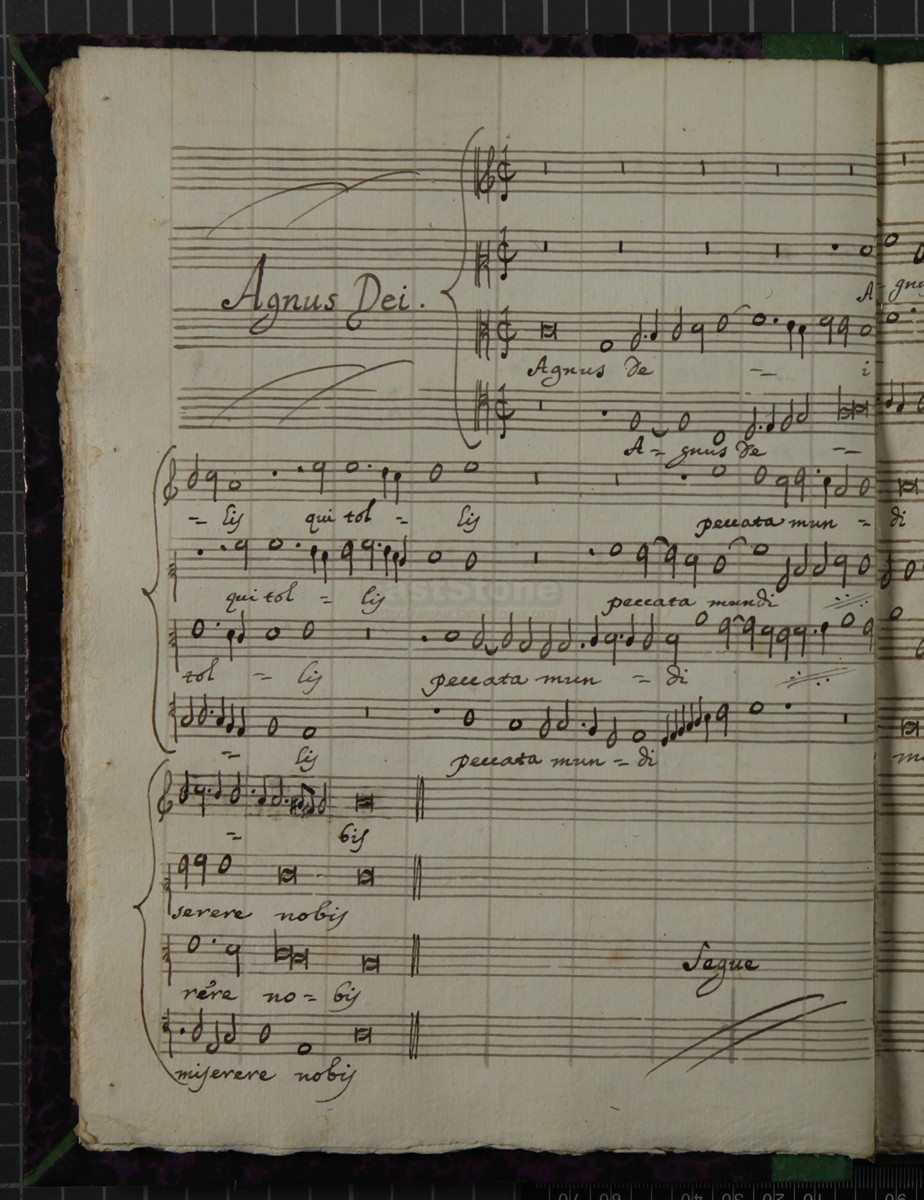 A- gnu
Agnus Dei.
Agnus de -- i
A- gnus de --
-- lis qui tol - lis peccata mun - di
qui tol - lis peccata mundi ./.
tol - lis peccata mun - di ./.
-- lis peccata mun - di m
-- bis
serere nobis
rere no - bis
Segue
miserere nobis
70 60 50 40 30 20